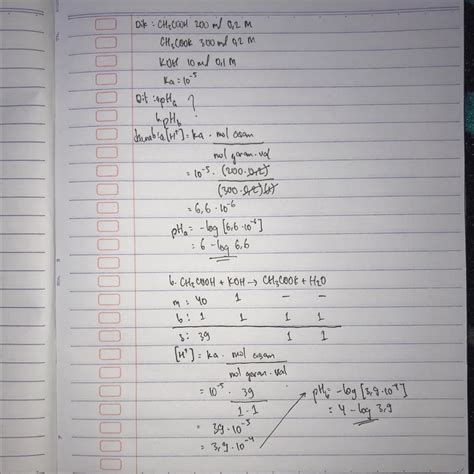 Dik : CH₃COOH 200 ml 0,2 M
CH₃COOK 300 ml 0,2 M
KOH 10 ml 0,1 M
Ka = 10⁻⁵
Dit : a. pHa ?
b. pHb
Jawab : a. [H⁺] = Ka . mol asam
mol garam . val
= 10⁻⁵ . (200 . 0,2)
(300 . 0,2)(1)
= 6,6 . 10⁻⁶
pHa = -log [6,6 . 10⁻⁶]
= 6 - log 6,6
b. CH₃COOH + KOH → CH₃COOK + H₂O
m : 40 1 - -
b : 1 1 1 1
s : 39 1 1
[H⁺] = Ka . mol asam
mol garam . val
= 10⁻⁵ . 39
1 . 1
= 39 . 10⁻⁵
= 3,9 . 10⁻⁴
pHb = -log [3,9 . 10⁻⁴]
= 4 - log 3,9